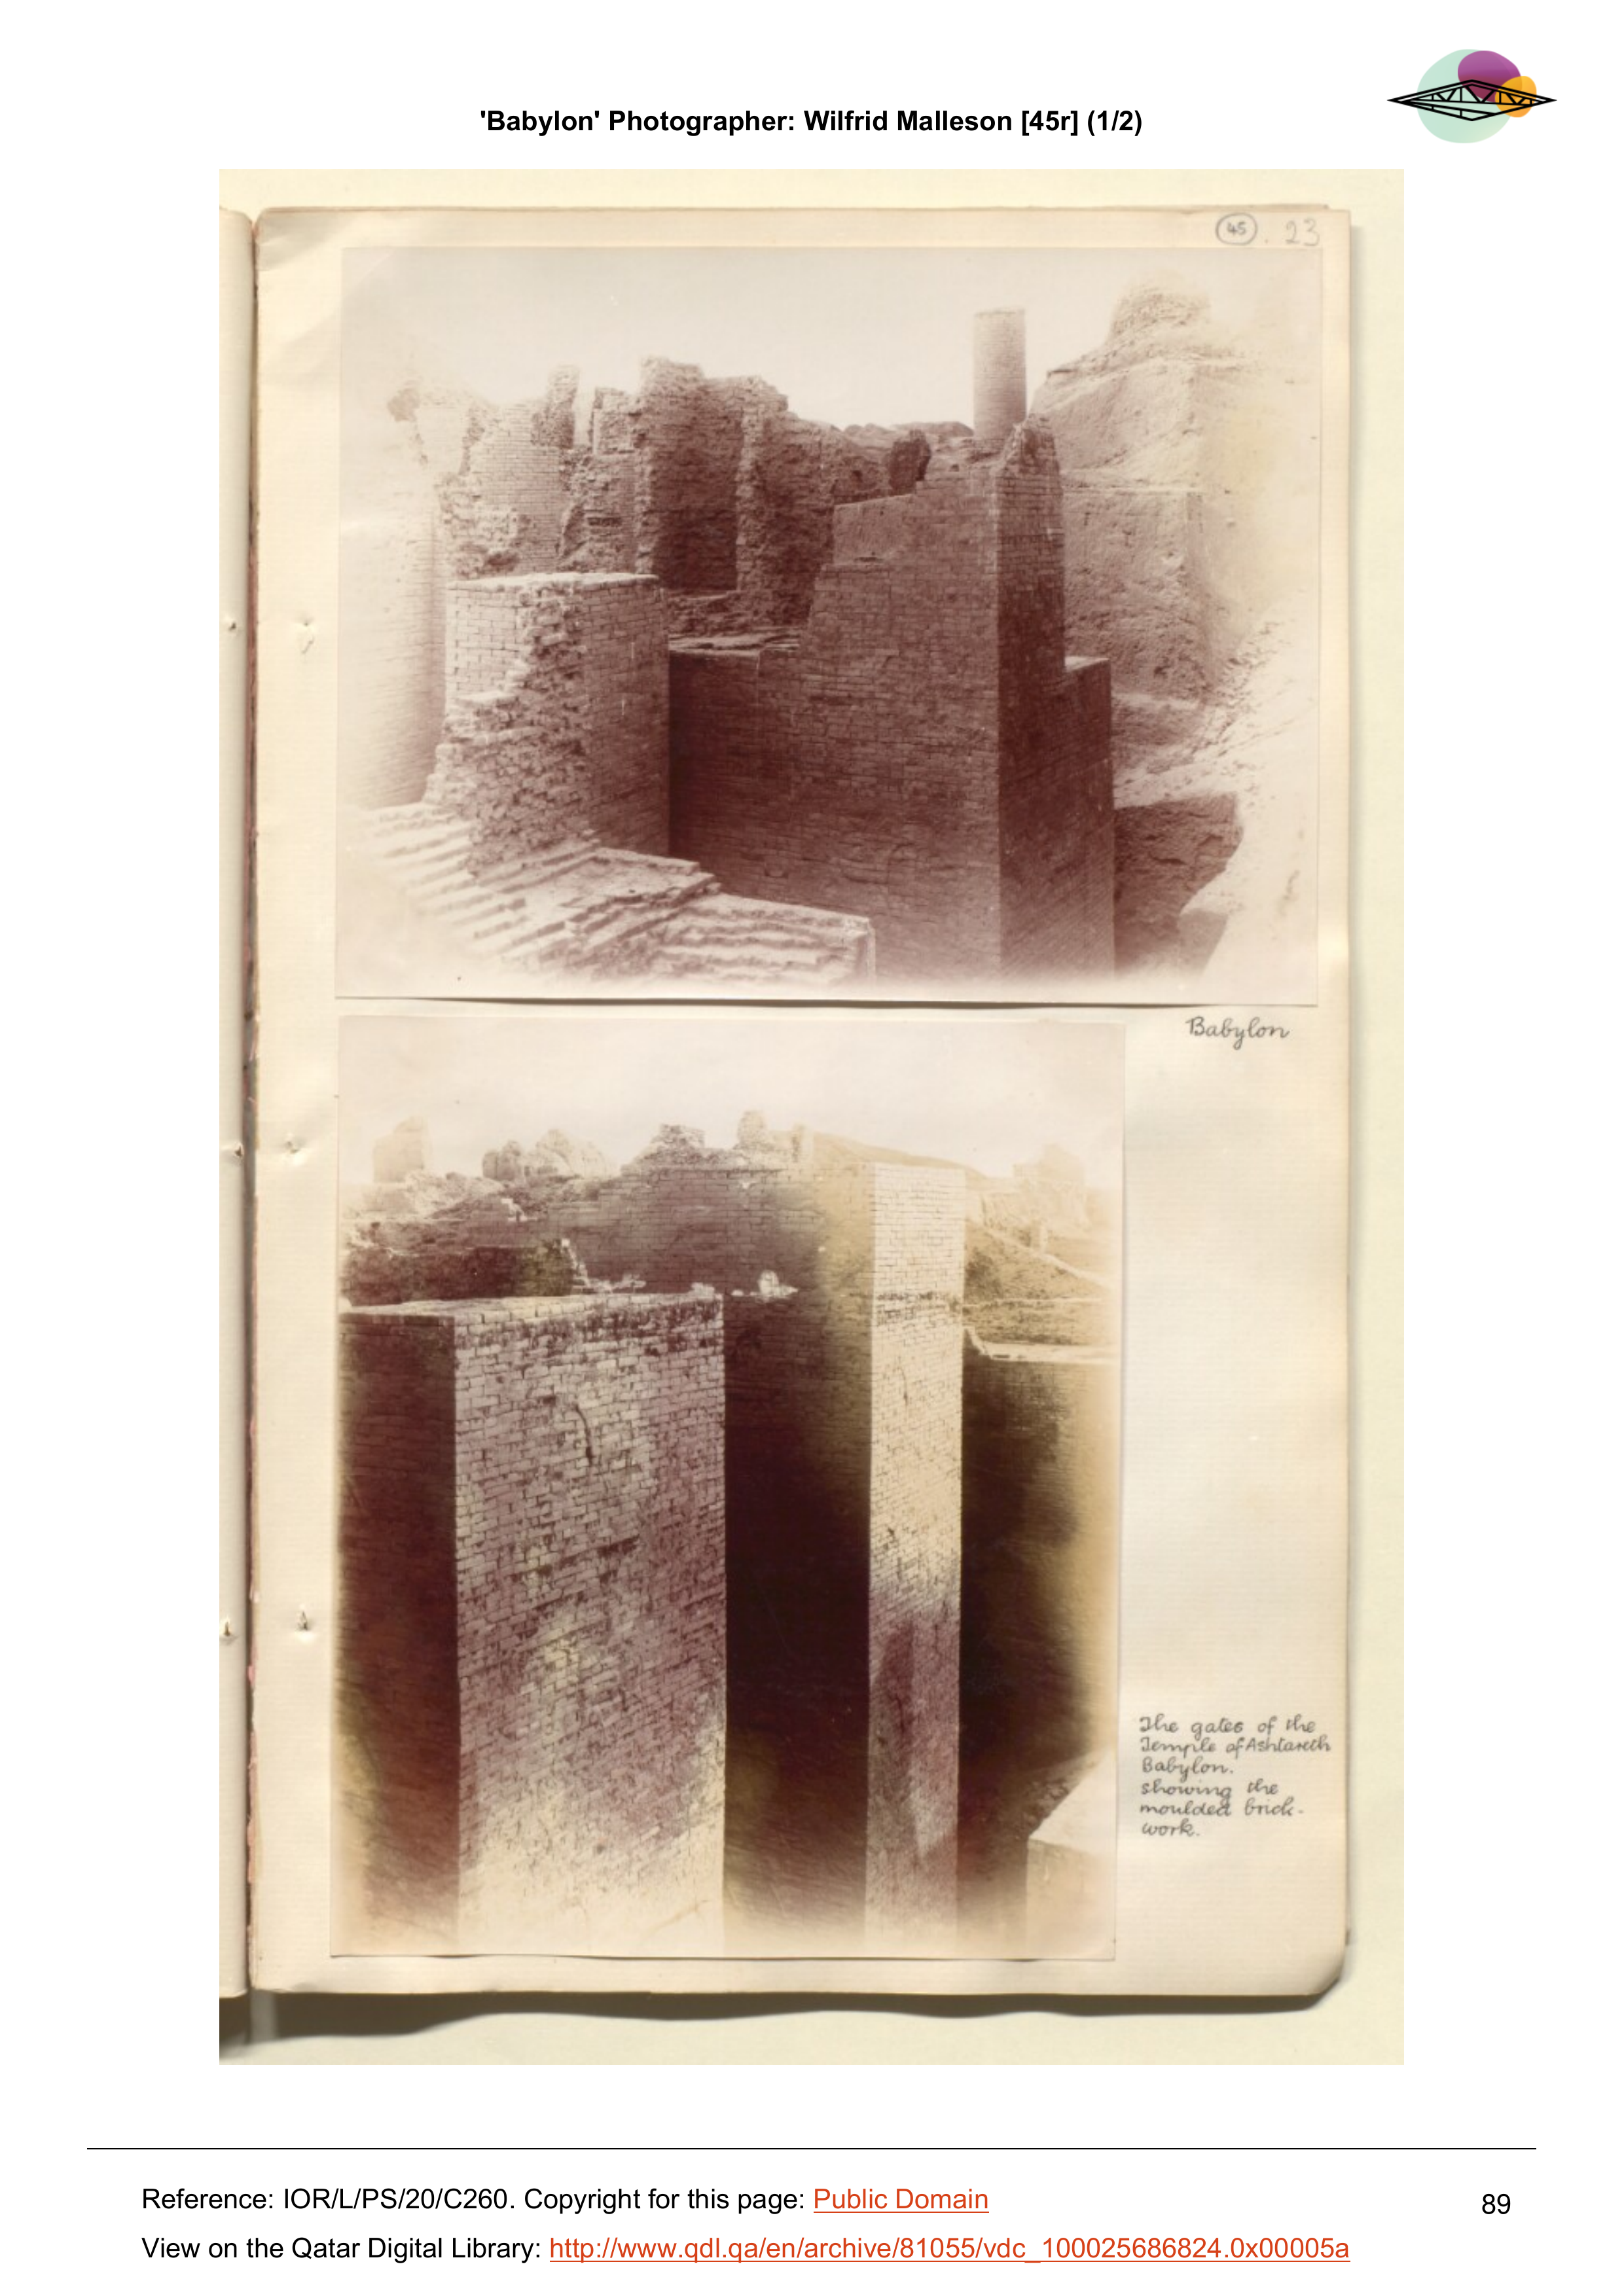 'Babylon' Photographer: Wilfrid Malleson [45r] (1/2)
45. 23
Babylon
The gates of the
Temple of Ashtareth
Babylon.
showing the
moulded brick-
work.
Reference: IOR/L/PS/20/C260. Copyright for this page: Public Domain
89
View on the Qatar Digital Library: http://www.qdl.qa/en/archive/81055/vdc_100025686824.0x00005a